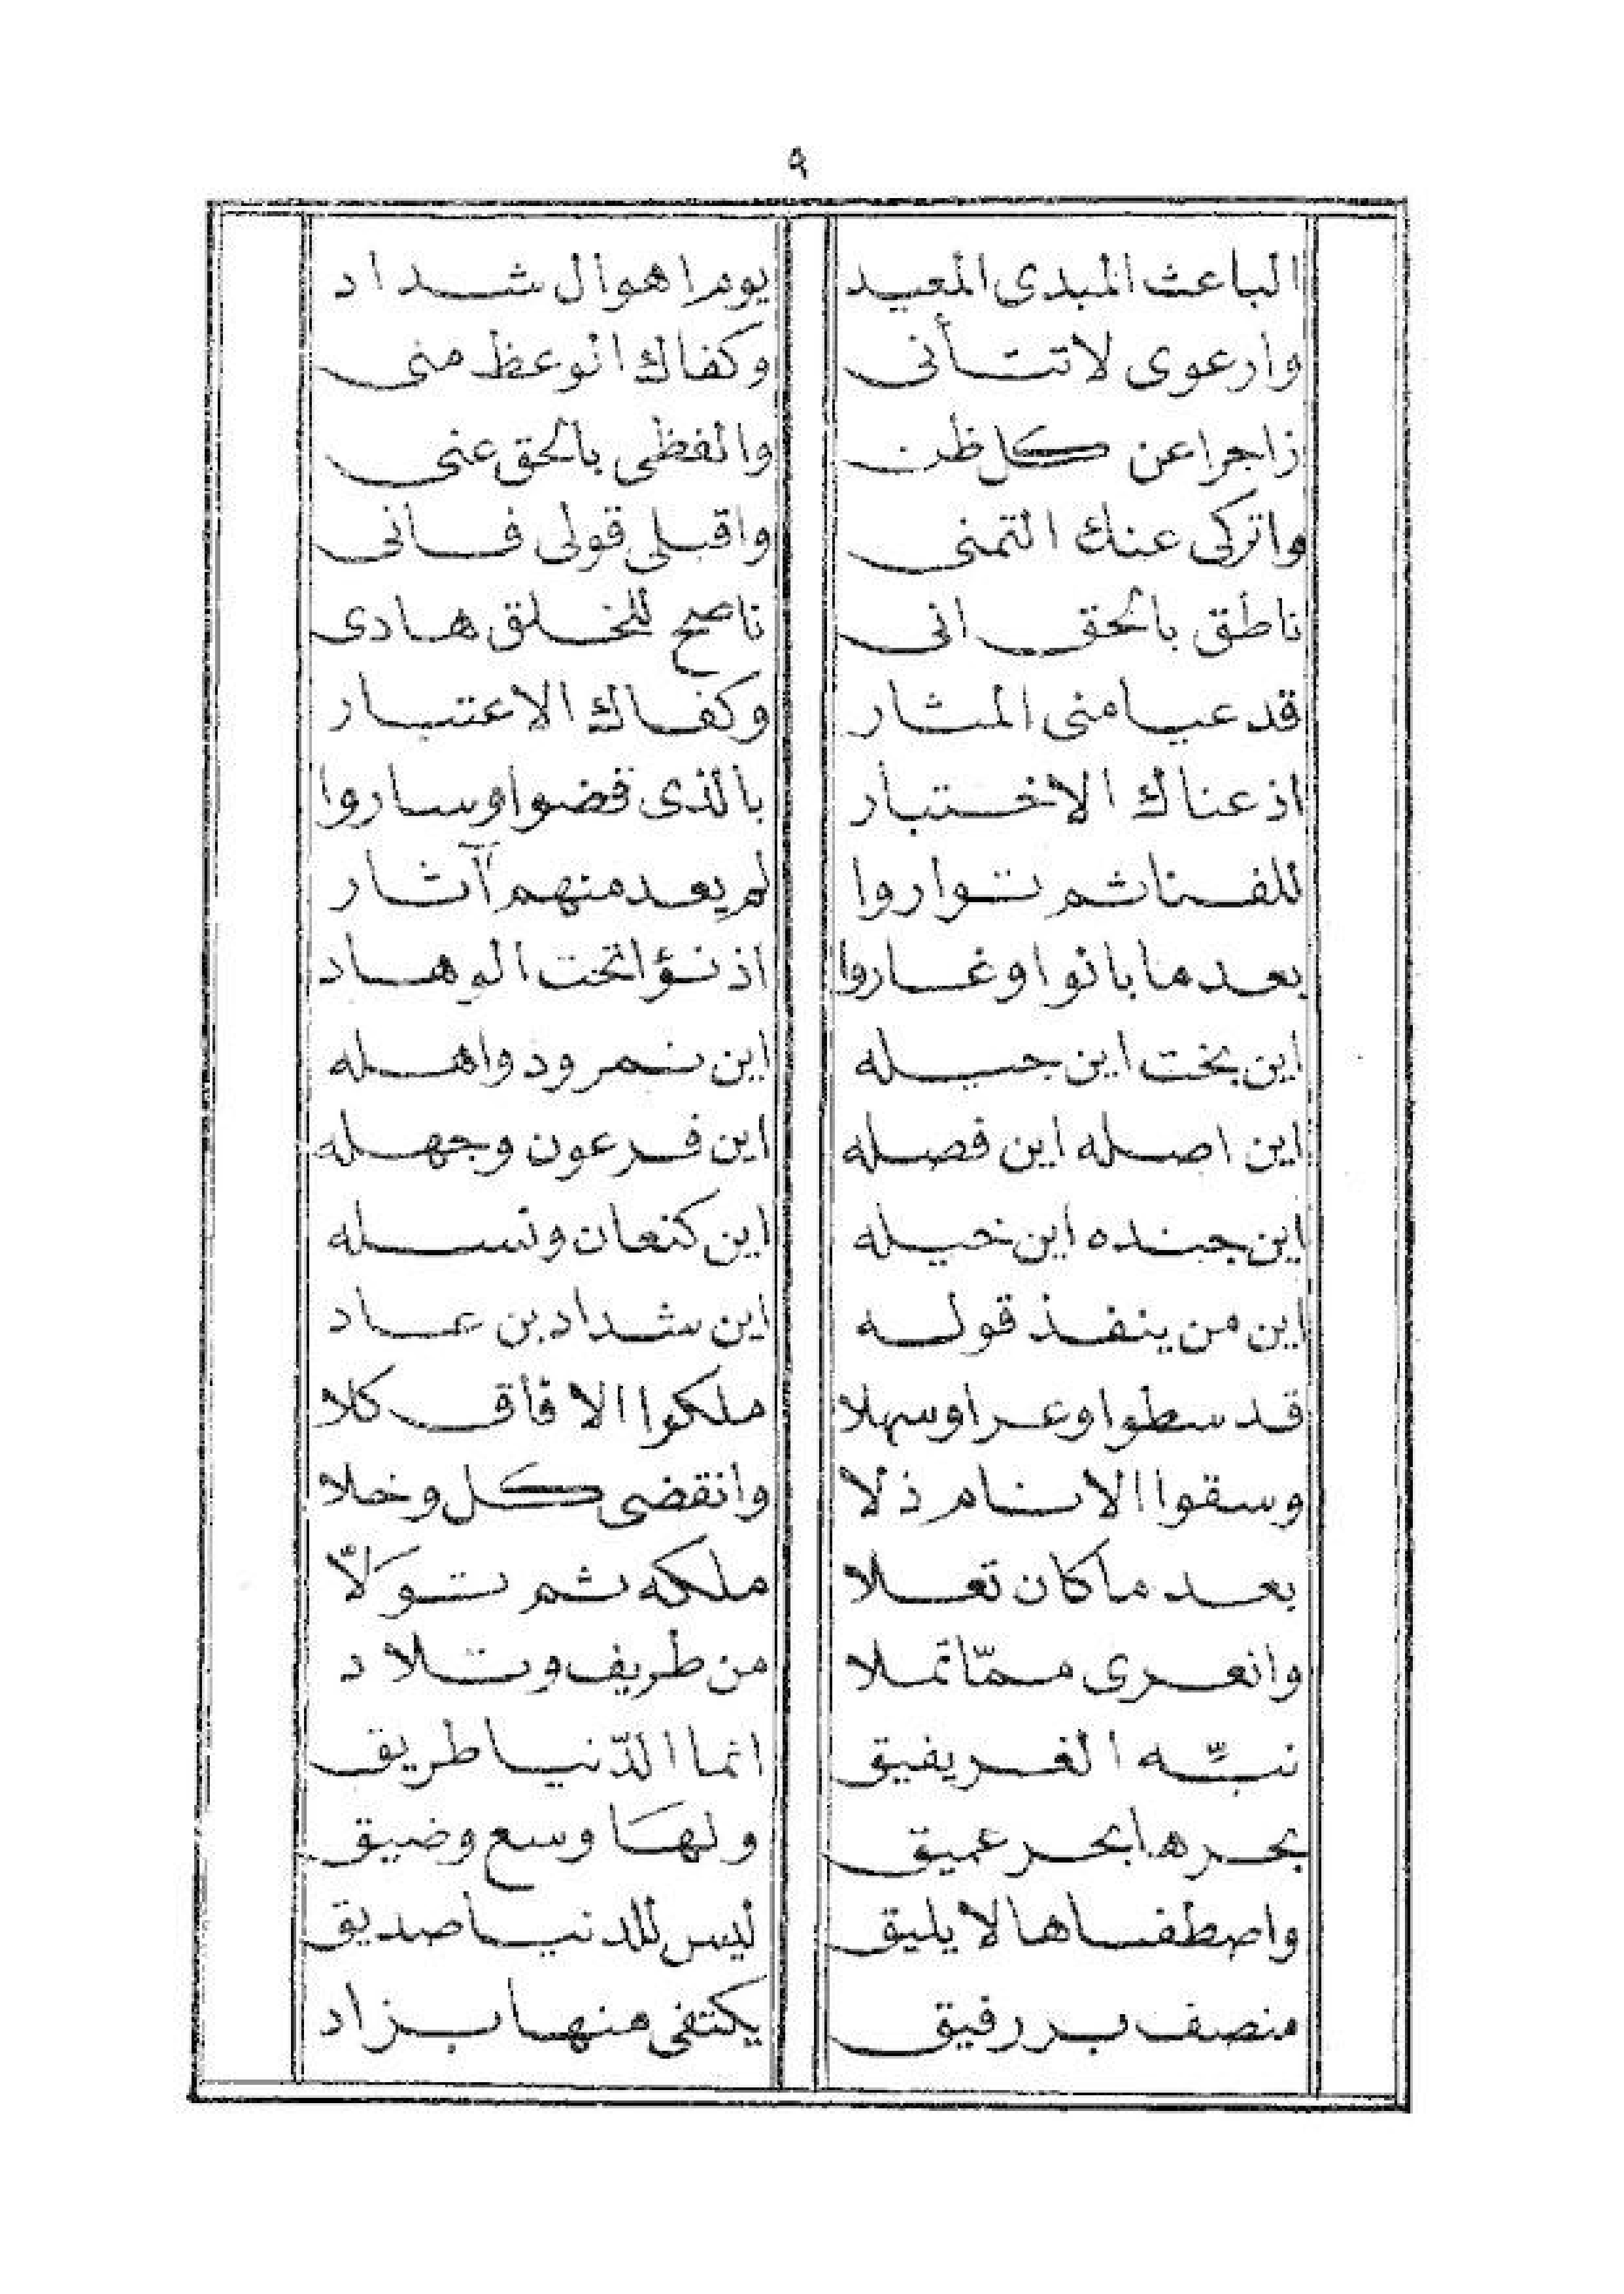 ٩
الباعث المبدى المعيد يوم اهوال شداد
وارعوى لاتتأنى وكفاك انوعظ منى
زاجرا عن كل ظن والفظى بالحق عنى
واتركى عنك التمنى واقبلى قولى فانى
ناطق بالحق انى ناصح للخلق هادى
قد عيا منى المشار وكفاك الاعتبار
اذ عناك الاختبار بالذى قضوا وساروا
للفنا ثم تواروا لم يعد منهم آثار
بعد ما بانوا وغاروا اذ نؤا تحت الوهاد
اين بخت اين جيله اين نمرود واهله
اين اصله اين فصله اين فرعون وجهله
اين جنده اين خيله اين كنعان ونسله
اين من ينفذ قوله اين شداد بن عاد
قد سطوا وعرا وسهلا ملكوا الافاق كلا
وسقوا الانام ذلا وانقضى كل وخلا
بعد ماكان تعلا ملكه ثم توَلاّ
وانعرى ممّا تملا من طريف وتلاد
نبّه الغر يفيق انما الدّنيا طريق
بحرها بحر عميق ولهَا وسع وضيق
واصطفاها لا يليق ليس للدنيا صديق
منصف بر رفيق يكتفى منها بزاد